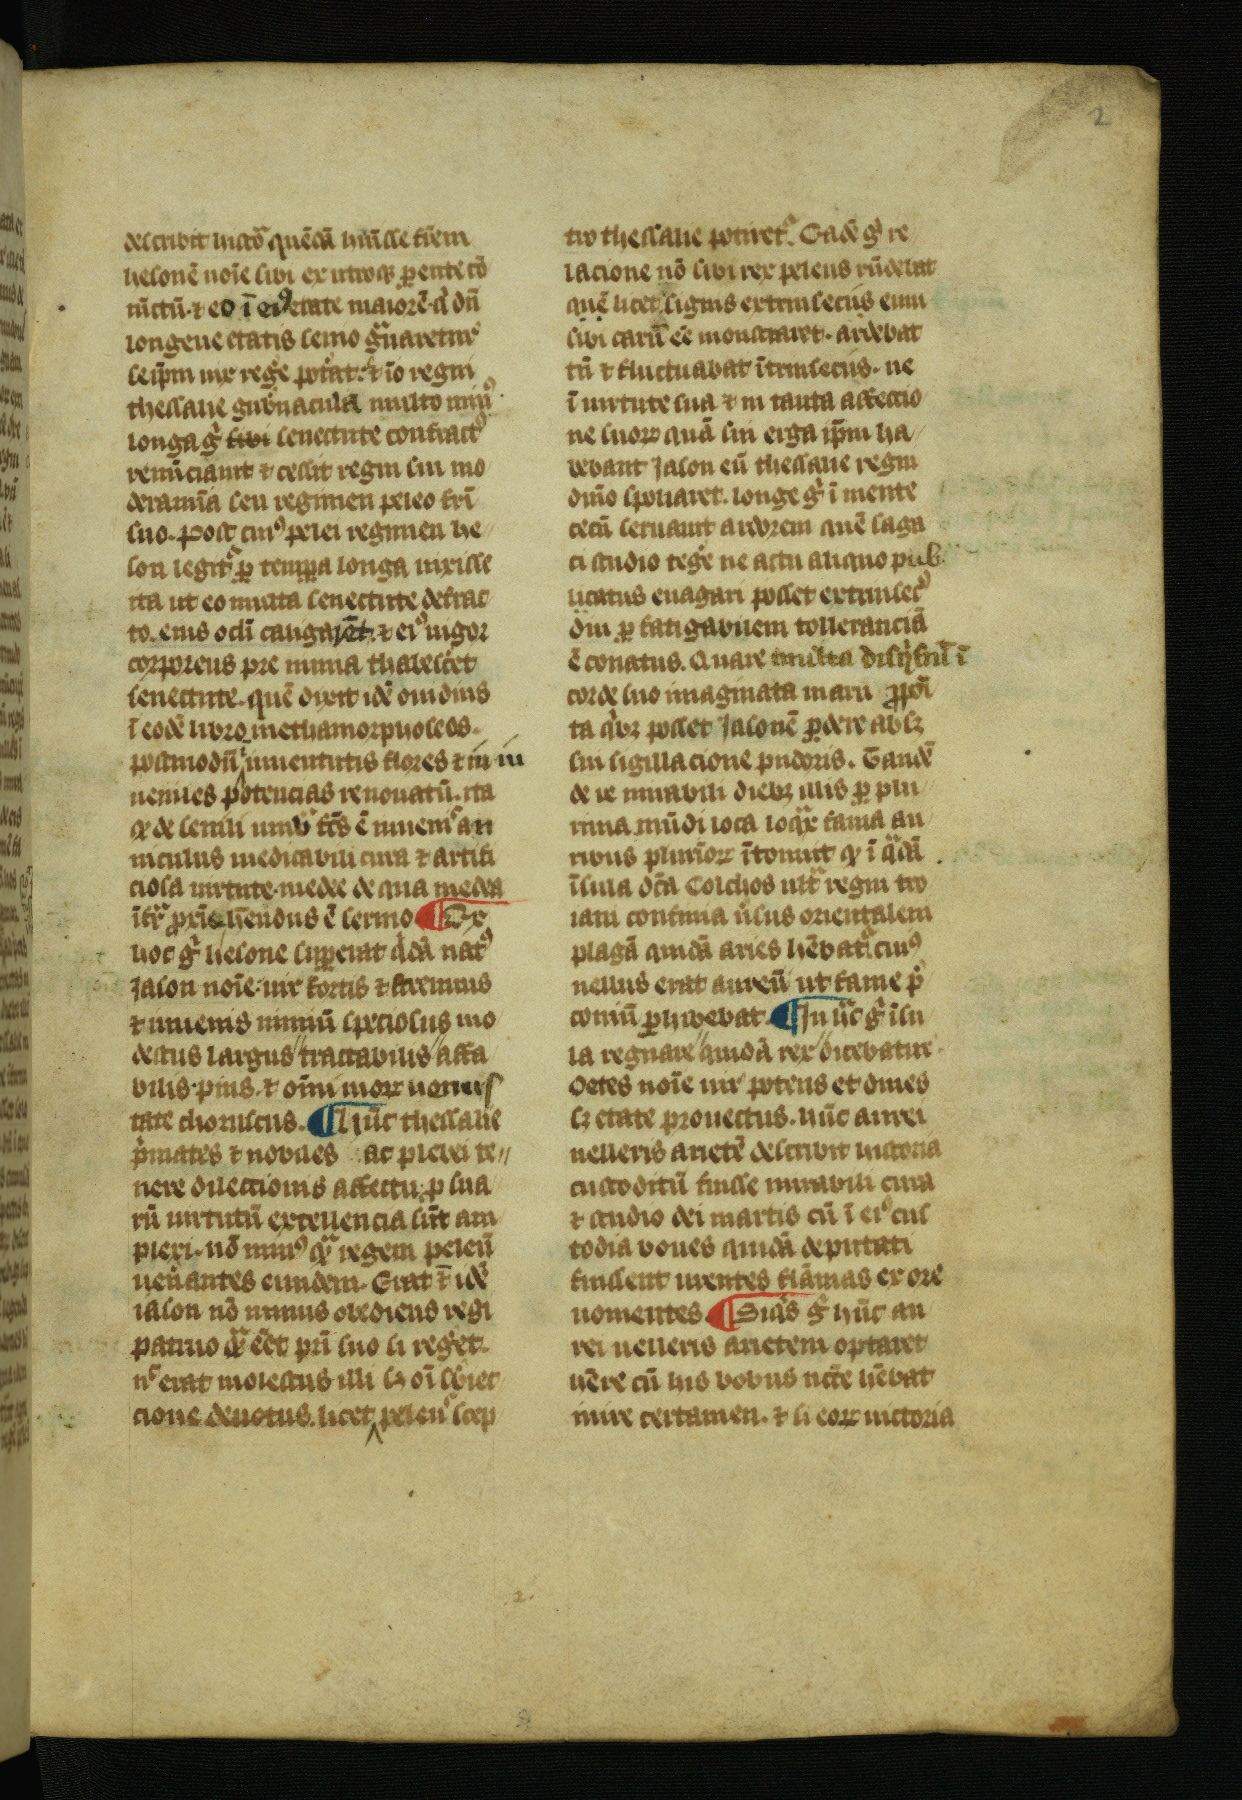 2
describit histōa quēdā habuisse frēm
hesonē noīe sibi ex utroq₃ pente cō
iūctū ⁊ eo ī ei⁹ etate maiorē q̇ dū
longeue etatis senio grͣuaretur
seip̄m uix regͤe pot̾at. ⁊ iō regni
thessalie gub̾nacula multo min⁹
longa gͦ senectute confract⁹
renūciauit ⁊ cessit regni sui mo
deramīa seu regimen peleo frī
suo. Post cui⁹ pelei regimen he
son legit̾ p tempa longa uixisse
ita ut eo multa senectute defrac
to. eius oclī caligarēt ⁊ ei⁹ uigor
corporeus pre nimia thabescēt
senectute. quē dixit idē ouidius
ī eodē libro methamorphoseos.
postmodū iuuentutis flores ⁊ in iu
ueniles potencias renouatū. ita
q̄ de senili uiro fc̄s ē iuuenis an
niculus medicabili cura ⁊ artifi
ciosa uirtute medee de qua medea
īfrͣ prīs hēndus ē sermo ¶ Ex
hoc gͦ hesone supperat q̇dā nat⁹
Jason noīe uir fortis ⁊ strenuus
⁊ iuuenis nimiū speciosus mo
destus largus tractabilis affa
bilis pius. ⁊ oīni morꝝ uenus
tate choruscus. ¶ Hūc thessalie
pͥmates ⁊ nobiles ac plebei te
nere dilectionis affectu p sua
rū uirtutū excellencia sūt am
plexi. nō min⁹ qͣ regem peleū
uen̄antes eundem. Erat ⁊ idē
iason nō minus obediens regi
patruo qͣ eēt pri suo si regͤet.
nͨ erat molestus illi sꝫ oī sb̄iec
cione deuotus. licet peleus scep
tro thessalie potiret̾. Eadē gͦ re
lacione nō sibi rex peleus rn̄debat
quē licet signis extrinsecus eum
sibi carū eē monstraret. ardebat
tn̄ ⁊ fluctuabat ītrinsecus. ne
ī uirtute sua ⁊ in tanta affectio
ne suorꝝ quā sui erga ip̄m ha
bebant Jason eū thessalie regni
dn̄io spoliaret. longe gͦ ī mente
cecū seruauit ardorem quē saga
ci studio tegͤe ne actu aliquo pub
licatus euagari posset extrinsec⁹
diu p fatigabilem tolleranciā
ē conatus. Quare multa disq̇siuit ī
corde suo imaginata mari pposī
ta qͥbꝫ posset Jasonē pdere absꝫ
sui sigillacione pudoris. Tandē
de re mirabili diebꝫ illis p plu
rima mūdi loca loqͣx fama au
ribus plurīorꝝ ītonuit q̄ ī q̇dā
īsula dc̄a Colchos ultͣ regni tro
iani confinia ūsus orientalem
plagā quidā aries hēbat̾ cui⁹
uellus erat aureū ut fame pͥ
coniū phibebat. ¶ In hͨ gͦ isu
la regnare quidā rex dicebatur.
Oetes noīe uir potens et diues
sꝫ etate prouectus. hūc aurei
uelleris arietē describit historia
custoditū fuisse mirabili cura
⁊ studio dei martis cū ī ei⁹ cus
todia boues quidā deputati
fuissent urentes flāmas ex ore
uomentes ¶ Siqͥs gͦ hūc au
rei uelleris arietem optaret
hēre cū his bobus nc̄ce hēbat
inire certamen. ⁊ si eorꝝ uictoria